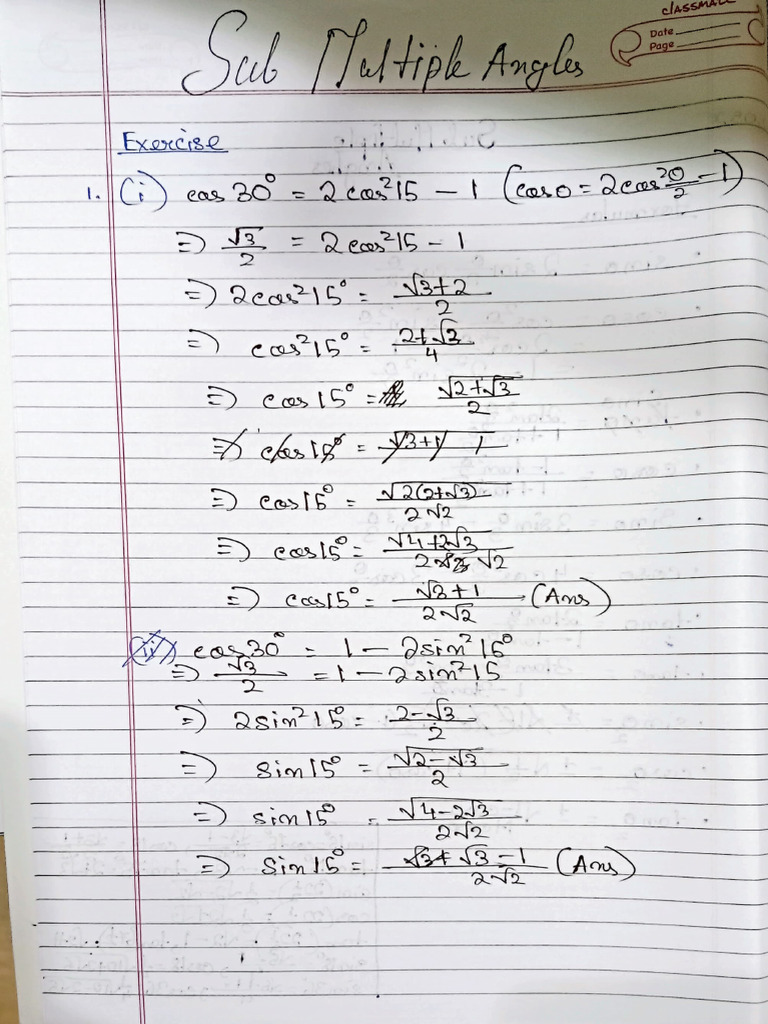 classmate
Date
Page
Sub Multiple Angles
Exercise
1. (i) cos 30° = 2cos²15 − 1 (cosθ = 2cos²θ/2 − 1)
⇒ √3/2 = 2cos²15 − 1
⇒ 2cos²15° = √3+2/2
⇒ cos²15° = 2+√3/4
⇒ cos 15° = √2+√3/2
⇒ cos 15° = √3+1 1
⇒ cos 15° = √2(2+√3)/2√2
⇒ cos 15° = √4+2√3/2√2
⇒ cos 15° = √3+1/2√2 (Ans)
(ii) cos 30° = 1 − 2sin²15°
⇒ √3/2 = 1 − 2sin²15
⇒ 2sin²15° = 2−√3/2
⇒ sin 15° = √2−√3/2
⇒ sin 15° = √4−2√3/2√2
⇒ sin 15° = √3−1/2√2 (Ans)